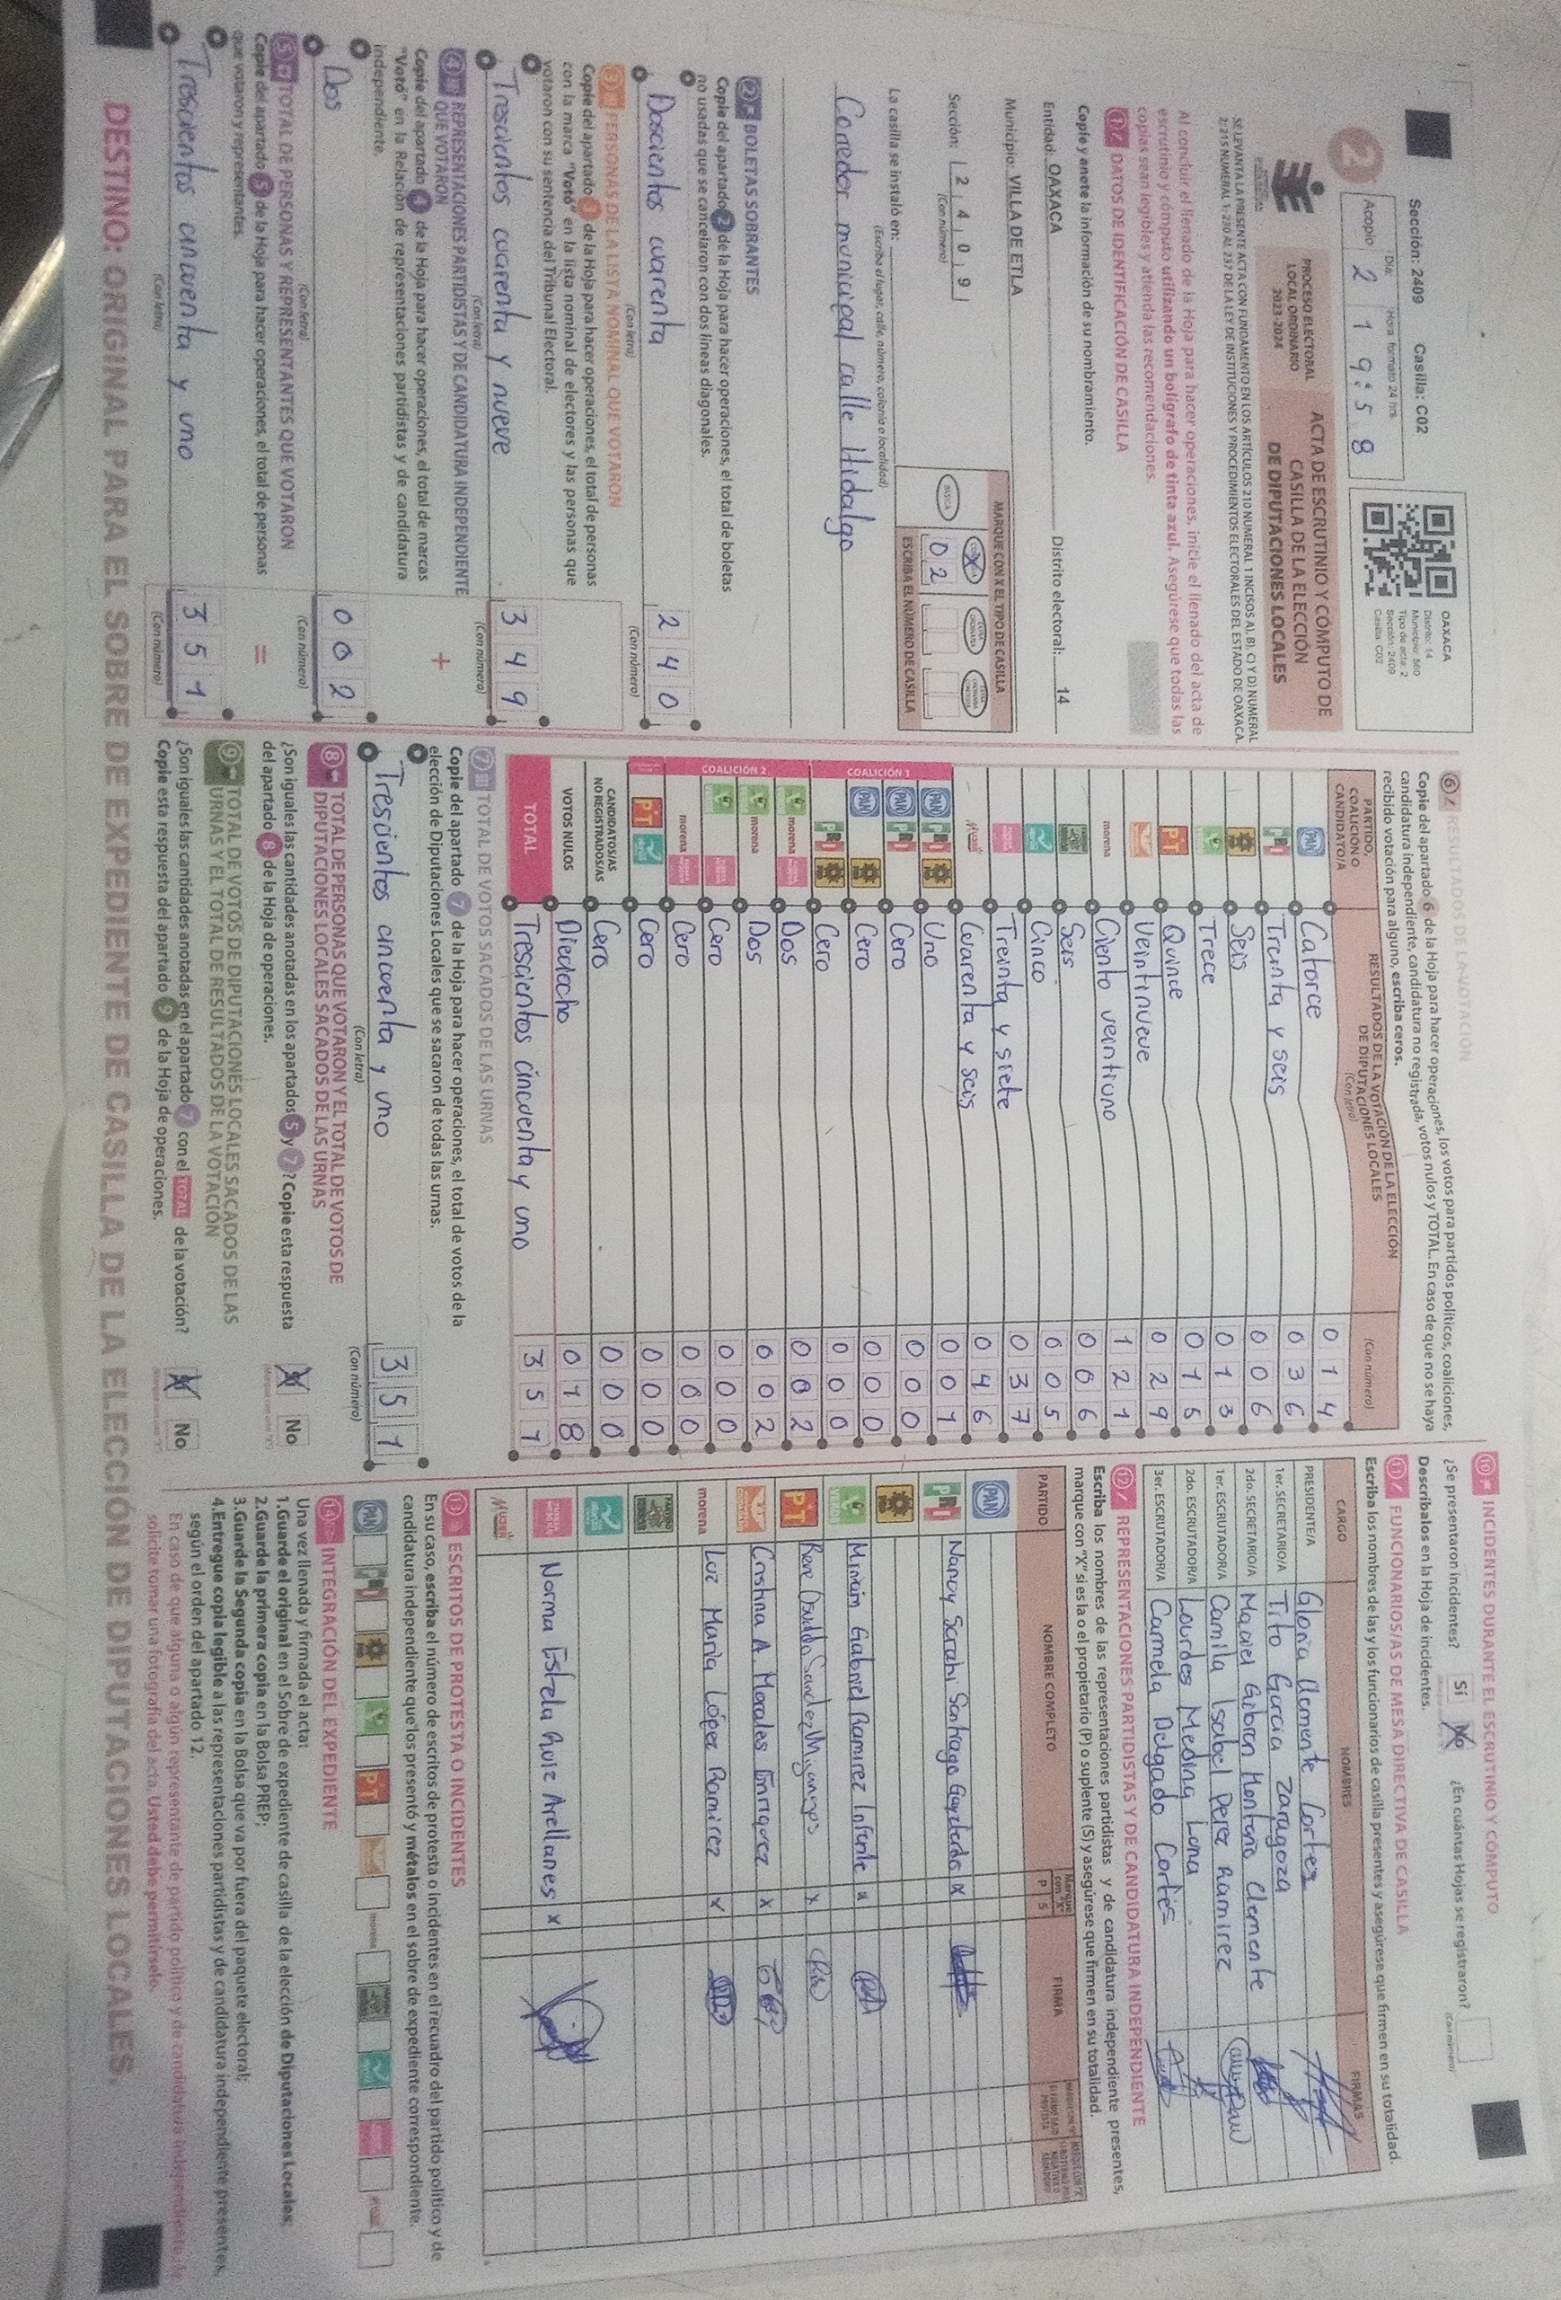 Sección: 2409 Casilla: C02
Día: Hora formato 24 hrs
Acopio 2 19:58
OAXACA
Distrito: 14
Municipio: 560
Tipo de acta: 2
Sección: 2409
Casilla: C02
2
PROCESO ELECTORAL
LOCAL ORDINARIO
2023-2024
ACTA DE ESCRUTINIO Y CÓMPUTO DE
CASILLA DE LA ELECCIÓN
DE DIPUTACIONES LOCALES
SE LEVANTA LA PRESENTE ACTA CON FUNDAMENTO EN LOS ARTÍCULOS 210 NUMERAL 1 INCISOS A), B), C) Y D) NUMERAL
2; 215 NUMERAL 1; 230 AL 237 DE LA LEY DE INSTITUCIONES Y PROCEDIMIENTOS ELECTORALES DEL ESTADO DE OAXACA.
Al concluir el llenado de la Hoja para hacer operaciones, inicie el llenado del acta de
escrutinio y cómputo utilizando un bolígrafo de tinta azul. Asegúrese que todas las
copias sean legibles y atienda las recomendaciones.
1 DATOS DE IDENTIFICACIÓN DE CASILLA
Copie y anote la información de su nombramiento.
Entidad: OAXACA Distrito electoral: 14
Municipio: VILLA DE ETLA
Sección: 2 4 0 9
(Con número)
MARQUE CON X EL TIPO DE CASILLA
BÁSICA
0 2
ESCRIBA EL NÚMERO DE CASILLA
La casilla se instaló en:
(Escriba el lugar, calle, número, colonia o localidad)
Corredor municipal calle Hidalgo
2 BOLETAS SOBRANTES
Copie del apartado 2 de la Hoja para hacer operaciones, el total de boletas
no usadas que se cancelaron con dos líneas diagonales.
Doscientos cuarenta 2 4 0
(Con letra) (Con número)
3 PERSONAS DE LA LISTA NOMINAL QUE VOTARON
Copie del apartado 3 de la Hoja para hacer operaciones, el total de personas
con la marca "Votó" en la lista nominal de electores y las personas que
votaron con su sentencia del Tribunal Electoral.
Trescientos cuarenta y nueve 3 4 9
(Con letra) (Con número)
4 REPRESENTACIONES PARTIDISTAS Y DE CANDIDATURA INDEPENDIENTE
QUE VOTARON
+
Copie del apartado 4 de la Hoja para hacer operaciones, el total de marcas
"Votó" en la Relación de representaciones partidistas y de candidatura
independiente.
Dos 0 0 2
(Con letra) (Con número)
5 TOTAL DE PERSONAS Y REPRESENTANTES QUE VOTARON
=
Copie del apartado 5 de la Hoja para hacer operaciones, el total de personas
que votaron y representantes.
Trescientos cincuenta y uno 3 5 1
(Con letra) (Con número)
6 RESULTADOS DE LA VOTACIÓN
Copie del apartado 6 de la Hoja para hacer operaciones, los votos para partidos políticos, coaliciones,
candidatura independiente, candidatura no registrada, votos nulos y TOTAL. En caso de que no se haya
recibido votación para alguno, escriba ceros.
PARTIDO,
COALICIÓN O
CANDIDATO/A
RESULTADOS DE LA VOTACIÓN DE LA ELECCIÓN
DE DIPUTACIONES LOCALES
(Con letra) (Con número)
PAN Catorce 0 1 4
PRI Treinta y seis 0 3 6
PRD Seis 0 0 6
Trece 0 1 3
PT Quince 0 1 5
Veintinueve 0 2 9
morena Ciento veintiuno 1 2 1
Seis 0 0 6
Cinco 0 0 5
Treinta y siete 0 3 7
Cuarenta y seis 0 4 6
COALICIÓN 1
PAN PRI PRD Uno 0 0 1
PAN PRI Cero 0 0 0
PAN PRD Cero 0 0 0
PRI PRD Cero 0 0 0
COALICIÓN 2
morena Dos 0 0 2
morena Dos 0 0 2
Cero 0 0 0
morena Cero 0 0 0
PT Cero 0 0 0
CANDIDATOS/AS
NO REGISTRADOS/AS Cero 0 0 0
VOTOS NULOS Dieciocho 0 1 8
TOTAL Trescientos cincuenta y uno 3 5 1
7 TOTAL DE VOTOS SACADOS DE LAS URNAS
Copie del apartado 7 de la Hoja para hacer operaciones, el total de votos de la
elección de Diputaciones Locales que se sacaron de todas las urnas.
Trescientos cincuenta y uno 3 5 1
(Con letra) (Con número)
8 TOTAL DE PERSONAS QUE VOTARON Y EL TOTAL DE VOTOS DE
DIPUTACIONES LOCALES SACADOS DE LAS URNAS
¿Son iguales las cantidades anotadas en los apartados 5 y 7? Copie esta respuesta
del apartado 8 de la Hoja de operaciones.
X No
9 TOTAL DE VOTOS DE DIPUTACIONES LOCALES SACADOS DE LAS
URNAS Y EL TOTAL DE RESULTADOS DE LA VOTACIÓN
¿Son iguales las cantidades anotadas en el apartado 7 con el TOTAL de la votación?
Copie esta respuesta del apartado 9 de la Hoja de operaciones.
X No
10 INCIDENTES DURANTE EL ESCRUTINIO Y CÓMPUTO
¿Se presentaron incidentes? Sí No ¿En cuántas Hojas se registraron?
(Con número)
Descríbalos en la Hoja de incidentes.
11 FUNCIONARIOS/AS DE MESA DIRECTIVA DE CASILLA
Escriba los nombres de las y los funcionarios de casilla presentes y asegúrese que firmen en su totalidad.
CARGO NOMBRES FIRMAS
PRESIDENTE/A Gloria Clemente Cortes
1er. SECRETARIO/A Tito Garcia Zaragoza
2do. SECRETARIO/A Montaño Clemente
1er. ESCRUTADOR/A Camila Isabel Perez Ramirez
2do. ESCRUTADOR/A Lourdes Medina Luna
3er. ESCRUTADOR/A Carmela Delgado Cortés
12 REPRESENTACIONES PARTIDISTAS Y DE CANDIDATURA INDEPENDIENTE
Escriba los nombres de las representaciones partidistas y de candidatura independiente presentes,
marque con "X" si es la o el propietario (P) o suplente (S) y asegúrese que firmen en su totalidad.
PARTIDO NOMBRE COMPLETO Marque con "X" P S FIRMA
PAN
PRI Nancy Sarahi Santiago X
PRD
VERDE Gabriel Ramirez Infante X
PT Rene Osvaldo X
Cristina A. Morales Enriquez X
morena Luz Maria López Ramirez X
Norma Estela Ruiz Arellanes X
13 ESCRITOS DE PROTESTA O INCIDENTES
En su caso, escriba el número de escritos de protesta o incidentes en el recuadro del partido político y de
candidatura independiente que los presentó y métalos en el sobre de expediente correspondiente.
PAN PRI PRD PT morena
14 INTEGRACIÓN DEL EXPEDIENTE
Una vez llenada y firmada el acta:
1.Guarde el original en el Sobre de expediente de casilla de la elección de Diputaciones Locales;
2.Guarde la primera copia en la Bolsa PREP;
3.Guarde la Segunda copia en la Bolsa que va por fuera del paquete electoral;
4.Entregue copia legible a las representaciones partidistas y de candidatura independiente presentes,
según el orden del apartado 12.
En caso de que alguna o algún representante de partido político y de candidatura independiente
solicite tomar una fotografía del acta, Usted debe permitírselo.
DESTINO: ORIGINAL PARA EL SOBRE DE EXPEDIENTE DE CASILLA DE LA ELECCIÓN DE DIPUTACIONES LOCALES.